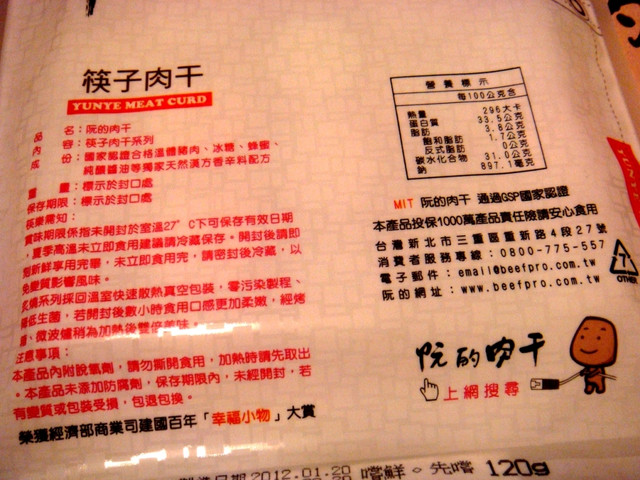 筷子肉干
YUNYE MEAT CURD
品名：阮的肉干
內容：筷子肉干系列
成份：國家認證合格溫體豬肉、冰糖、蜂蜜、
純釀醬油等獨家天然漢方香辛料配方
重量：標示於封口處
保存期限：標示於封口處
筷樂需知：
賞味期限係指未開封於室溫27°C下可保存有效日期
，夏季高溫未立即食用建議請冷藏保存。開封後請即
刻新鮮享用完畢，未立即食用完，請密封後冷藏，以
免變質影響風味。
炙燒系列採回溫室快速散熱真空包裝，零污染製程、
降低生菌，若開封後數小時食用口感更加柔嫩，經烤
箱、微波爐稍為加熱後雙倍美味。
注意事項：
本產品內附脫氧劑，請勿撕開食用，加熱時請先取出
。本產品未添加防腐劑，保存期限內，未經開封，若
有變質或包裝受損，包退包換。
榮獲經濟部商業司建國百年「幸福小物」大賞
營養標示
每100公克含
熱量 296大卡
蛋白質 33.5公克
脂肪 3.8公克
飽和脂肪 1.7公克
反式脂肪 0公克
碳水化合物 31.0公克
鈉 897.1毫克
MIT 阮的肉干 通過GSP國家認證
本產品投保1000萬產品責任險請安心食用
台灣新北市三重區重新路4段27號
消費者服務專線：0800-775-557
電子郵件：email@beefpro.com.tw
阮的網址：www.beefpro.com.tw
7
OTHER
阮的肉干
上網搜尋
製造日期2012.01.20 嚐鮮。先嚐 120g